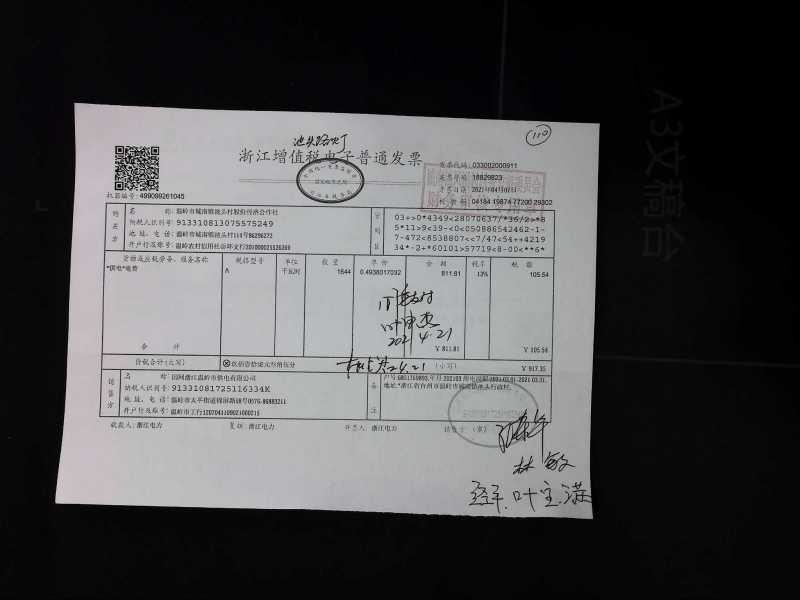 110
池头路灯
浙江增值税电子普通发票
发票代码: 033002000911
发票号码: 18829823
开票日期: 2021年04月01日
校验码: 04184 19874 77200 29302
机器编号: 499099261045
购买方
名 称: 温岭市城南镇池头村股份经济合作社
纳税人识别号: 913310813075575249
地 址、电 话: 温岭市城南镇池头村114号86296272
开户行及账号: 温岭农村信用社岙环支行
密码区
03+>0*4349<28070637/*36/2>*8
5*11>9<39-<0<050886542462-1-
7-472<8538807<<7/47<54++4219
34*-2+*60101>57719<8-00<**6*
货物或应税劳务、服务名称 规格型号 单位 数量 单价 金额 税率 税额
*供电*电费 A 千瓦时 1644 0.4938017032 811.81 13% 105.54
2021.4.21
合 计 ¥811.81 ¥105.54
价税合计(大写) ⊗玖佰壹拾柒元叁角伍分 (小写) ¥917.35
销售方
名 称: 国网浙江温岭市供电有限公司
纳税人识别号: 91331081725116334K
地 址、电 话: 温岭市太平街道锦屏路
开户行及账号: 温岭市工行1207041109021000215
备注
收款人: 浙江电力 复核: 浙江电力 开票人: 浙江电力 销售方:(章)
林敏
经手:叶宝满
A3文稿台